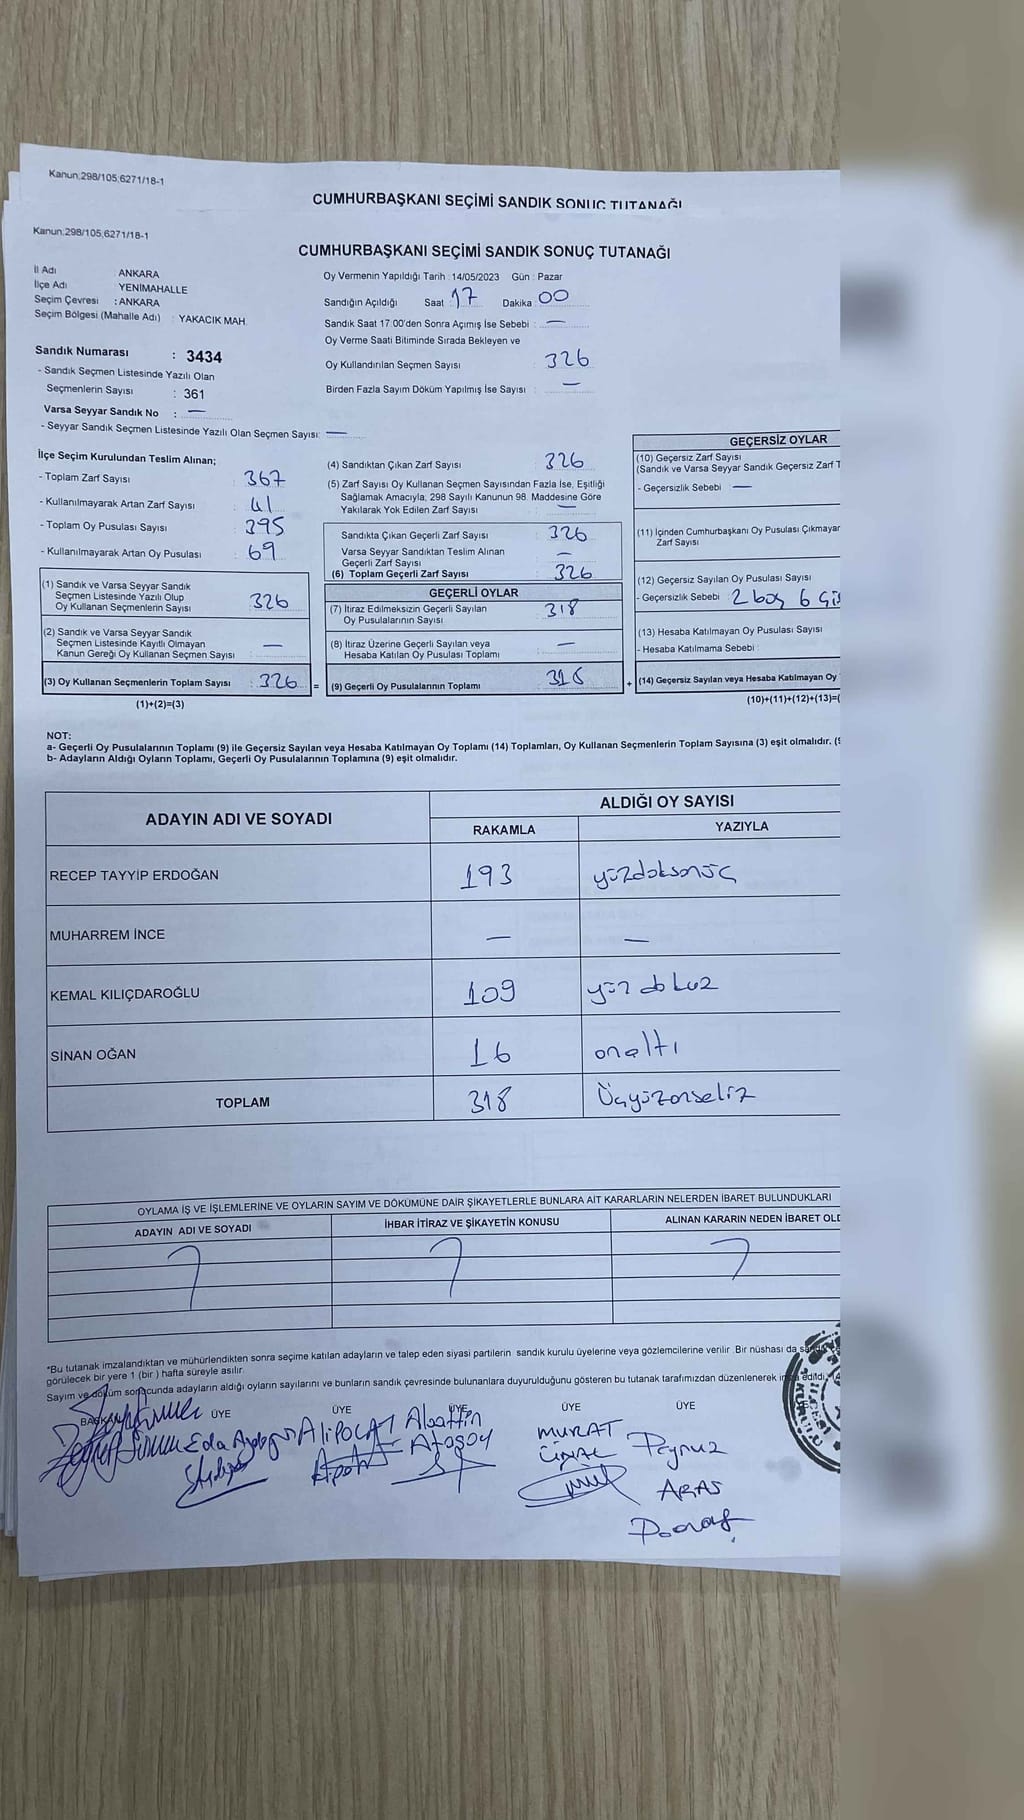 Kanun;298/105;6271/18-1
CUMHURBAŞKANI SEÇİMİ SANDIK SONUÇ TUTANAĞI
Kanun;298/105;6271/18-1
CUMHURBAŞKANI SEÇİMİ SANDIK SONUÇ TUTANAĞI
İl Adı : ANKARA
İlçe Adı : YENİMAHALLE
Seçim Çevresi : ANKARA
Seçim Bölgesi (Mahalle Adı) : YAKACIK MAH.
Sandık Numarası : 3434
- Sandık Seçmen Listesinde Yazılı Olan
Seçmenlerin Sayısı : 361
Varsa Seyyar Sandık No : —
- Seyyar Sandık Seçmen Listesinde Yazılı Olan Seçmen Sayısı: —
Oy Vermenin Yapıldığı Tarih : 14/05/2023 Gün : Pazar
Sandığın Açıldığı Saat : 17 Dakika : 00
Sandık Saat 17:00'den Sonra Açımış İse Sebebi : —
Oy Verme Saati Bitiminde Sırada Bekleyen ve
Oy Kullandırılan Seçmen Sayısı : 326
Birden Fazla Sayım Döküm Yapılmış İse Sayısı : —
İlçe Seçim Kurulundan Teslim Alınan;
- Toplam Zarf Sayısı : 367
- Kullanılmayarak Artan Zarf Sayısı : 41
- Toplam Oy Pusulası Sayısı : 395
- Kullanılmayarak Artan Oy Pusulası : 69
(1) Sandık ve Varsa Seyyar Sandık
Seçmen Listesinde Yazılı Olup
Oy Kullanan Seçmenlerin Sayısı : 326
(2) Sandık ve Varsa Seyyar Sandık
Seçmen Listesinde Kayıtlı Olmayan
Kanun Gereği Oy Kullanan Seçmen Sayısı : —
(3) Oy Kullanan Seçmenlerin Toplam Sayısı : 326 =
(1)+(2)=(3)
(4) Sandıktan Çıkan Zarf Sayısı : 326
(5) Zarf Sayısı Oy Kullanan Seçmen Sayısından Fazla İse, Eşitliği
Sağlamak Amacıyla; 298 Sayılı Kanunun 98. Maddesine Göre
Yakılarak Yok Edilen Zarf Sayısı : —
Sandıkta Çıkan Geçerli Zarf Sayısı : 326
Varsa Seyyar Sandıktan Teslim Alınan
Geçerli Zarf Sayısı : —
(6) Toplam Geçerli Zarf Sayısı : 326
GEÇERLİ OYLAR
(7) İtiraz Edilmeksizin Geçerli Sayılan
Oy Pusulalarının Sayısı : 318
(8) İtiraz Üzerine Geçerli Sayılan veya
Hesaba Katılan Oy Pusulası Toplamı : —
(9) Geçerli Oy Pusulalarının Toplamı : 318 +
GEÇERSİZ OYLAR
(10) Geçersiz Zarf Sayısı
(Sandık ve Varsa Seyyar Sandık Geçersiz Zarf T
- Geçersizlik Sebebi : —
(11) İçinden Cumhurbaşkanı Oy Pusulası Çıkmayar
Zarf Sayısı
(12) Geçersiz Sayılan Oy Pusulası Sayısı
- Geçersizlik Sebebi : 2 boş 6
(13) Hesaba Katılmayan Oy Pusulası Sayısı
- Hesaba Katılmama Sebebi :
(14) Geçersiz Sayılan veya Hesaba Katılmayan Oy
(10)+(11)+(12)+(13)=(
NOT:
a- Geçerli Oy Pusulalarının Toplamı (9) ile Geçersiz Sayılan veya Hesaba Katılmayan Oy Toplamı (14) Toplamları, Oy Kullanan Seçmenlerin Toplam Sayısına (3) eşit olmalıdır.
b- Adayların Aldığı Oyların Toplamı, Geçerli Oy Pusulalarının Toplamına (9) eşit olmalıdır.
ADAYIN ADI VE SOYADI ALDIĞI OY SAYISI
RAKAMLA YAZIYLA
RECEP TAYYİP ERDOĞAN 193 yüzdoksanüç
MUHARREM İNCE — —
KEMAL KILIÇDAROĞLU 109 yüz dokuz
SİNAN OĞAN 16 onaltı
TOPLAM 318 Üçyüzonsekiz
OYLAMA İŞ VE İŞLEMLERİNE VE OYLARIN SAYIM VE DÖKÜMÜNE DAİR ŞİKAYETLERLE BUNLARA AİT KARARLARIN NELERDEN İBARET BULUNDUKLARI
ADAYIN ADI VE SOYADI İHBAR İTİRAZ VE ŞİKAYETİN KONUSU ALINAN KARARIN NEDEN İBARET OLD
*Bu tutanak imzalandıktan ve mühürlendikten sonra seçime katılan adayların ve talep eden siyasi partilerin sandık kurulu üyelerine veya gözlemcilerine verilir. Bir nüshası da
görülecek bir yere 1 (bir ) hafta süreyle asılır.
Sayım ve döküm sonucunda adayların aldığı oyların sayılarını ve bunların sandık çevresinde bulunanlara duyurulduğunu gösteren bu tutanak tarafımızdan düzenlenerek imza edildi.
BAŞKAN ÜYE ÜYE ÜYE ÜYE ÜYE
Eda ALİ POLAT Alaattin Atasoy MURAT ÜNAL Peynuz
ARAS